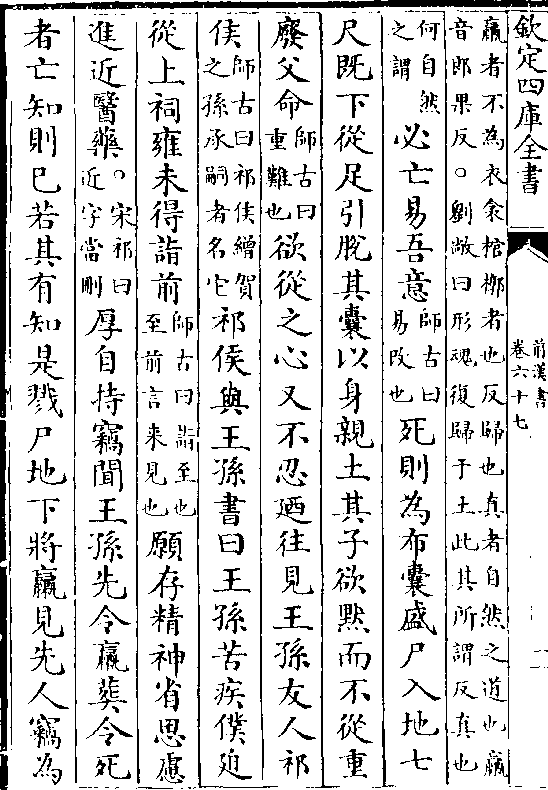 欽定四庫全書
前漢書
卷六十七
一
臝者不為衣衾棺槨者也反歸也真者自然之道也臝
音郎果反。劉敞曰形魂復歸于土此其所謂反真也
何自然
之謂
必亡易吾意
師古曰
易改也
死則為布囊盛尸入地七
尺既下從足引脫其囊以身親土其子欲默而不從重
廢父命
師古曰
重難也
欲從之心又不忍廼往見王孫友人祁
侯
師古曰祁侯繒賀
之孫承嗣者名它
祁侯與王孫書曰王孫苦疾僕迫
從上祠雍未得詣前
師古曰詣至也
至前言来見也
願存精神省思慮
進近醫藥
。宋祁曰
近字當刪
厚自持竊聞王孫先令臝葬令死
者亡知則已若其有知是戮尸地下將臝見先人竊為